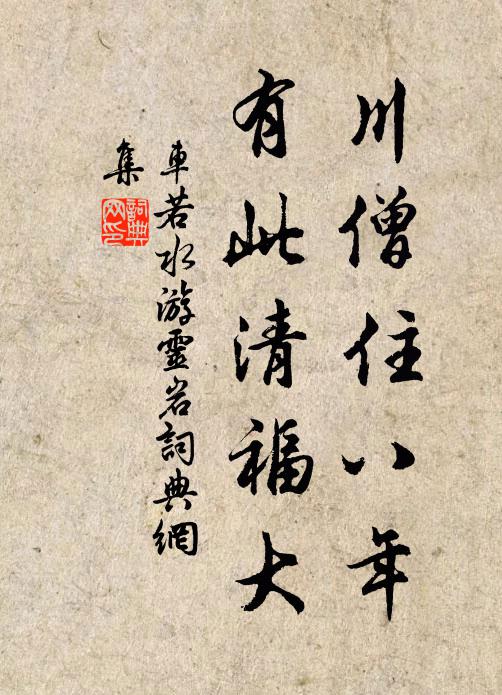 川僧住八年
有此清福大
車若水游靈岩詞典網
集
詞典
网印